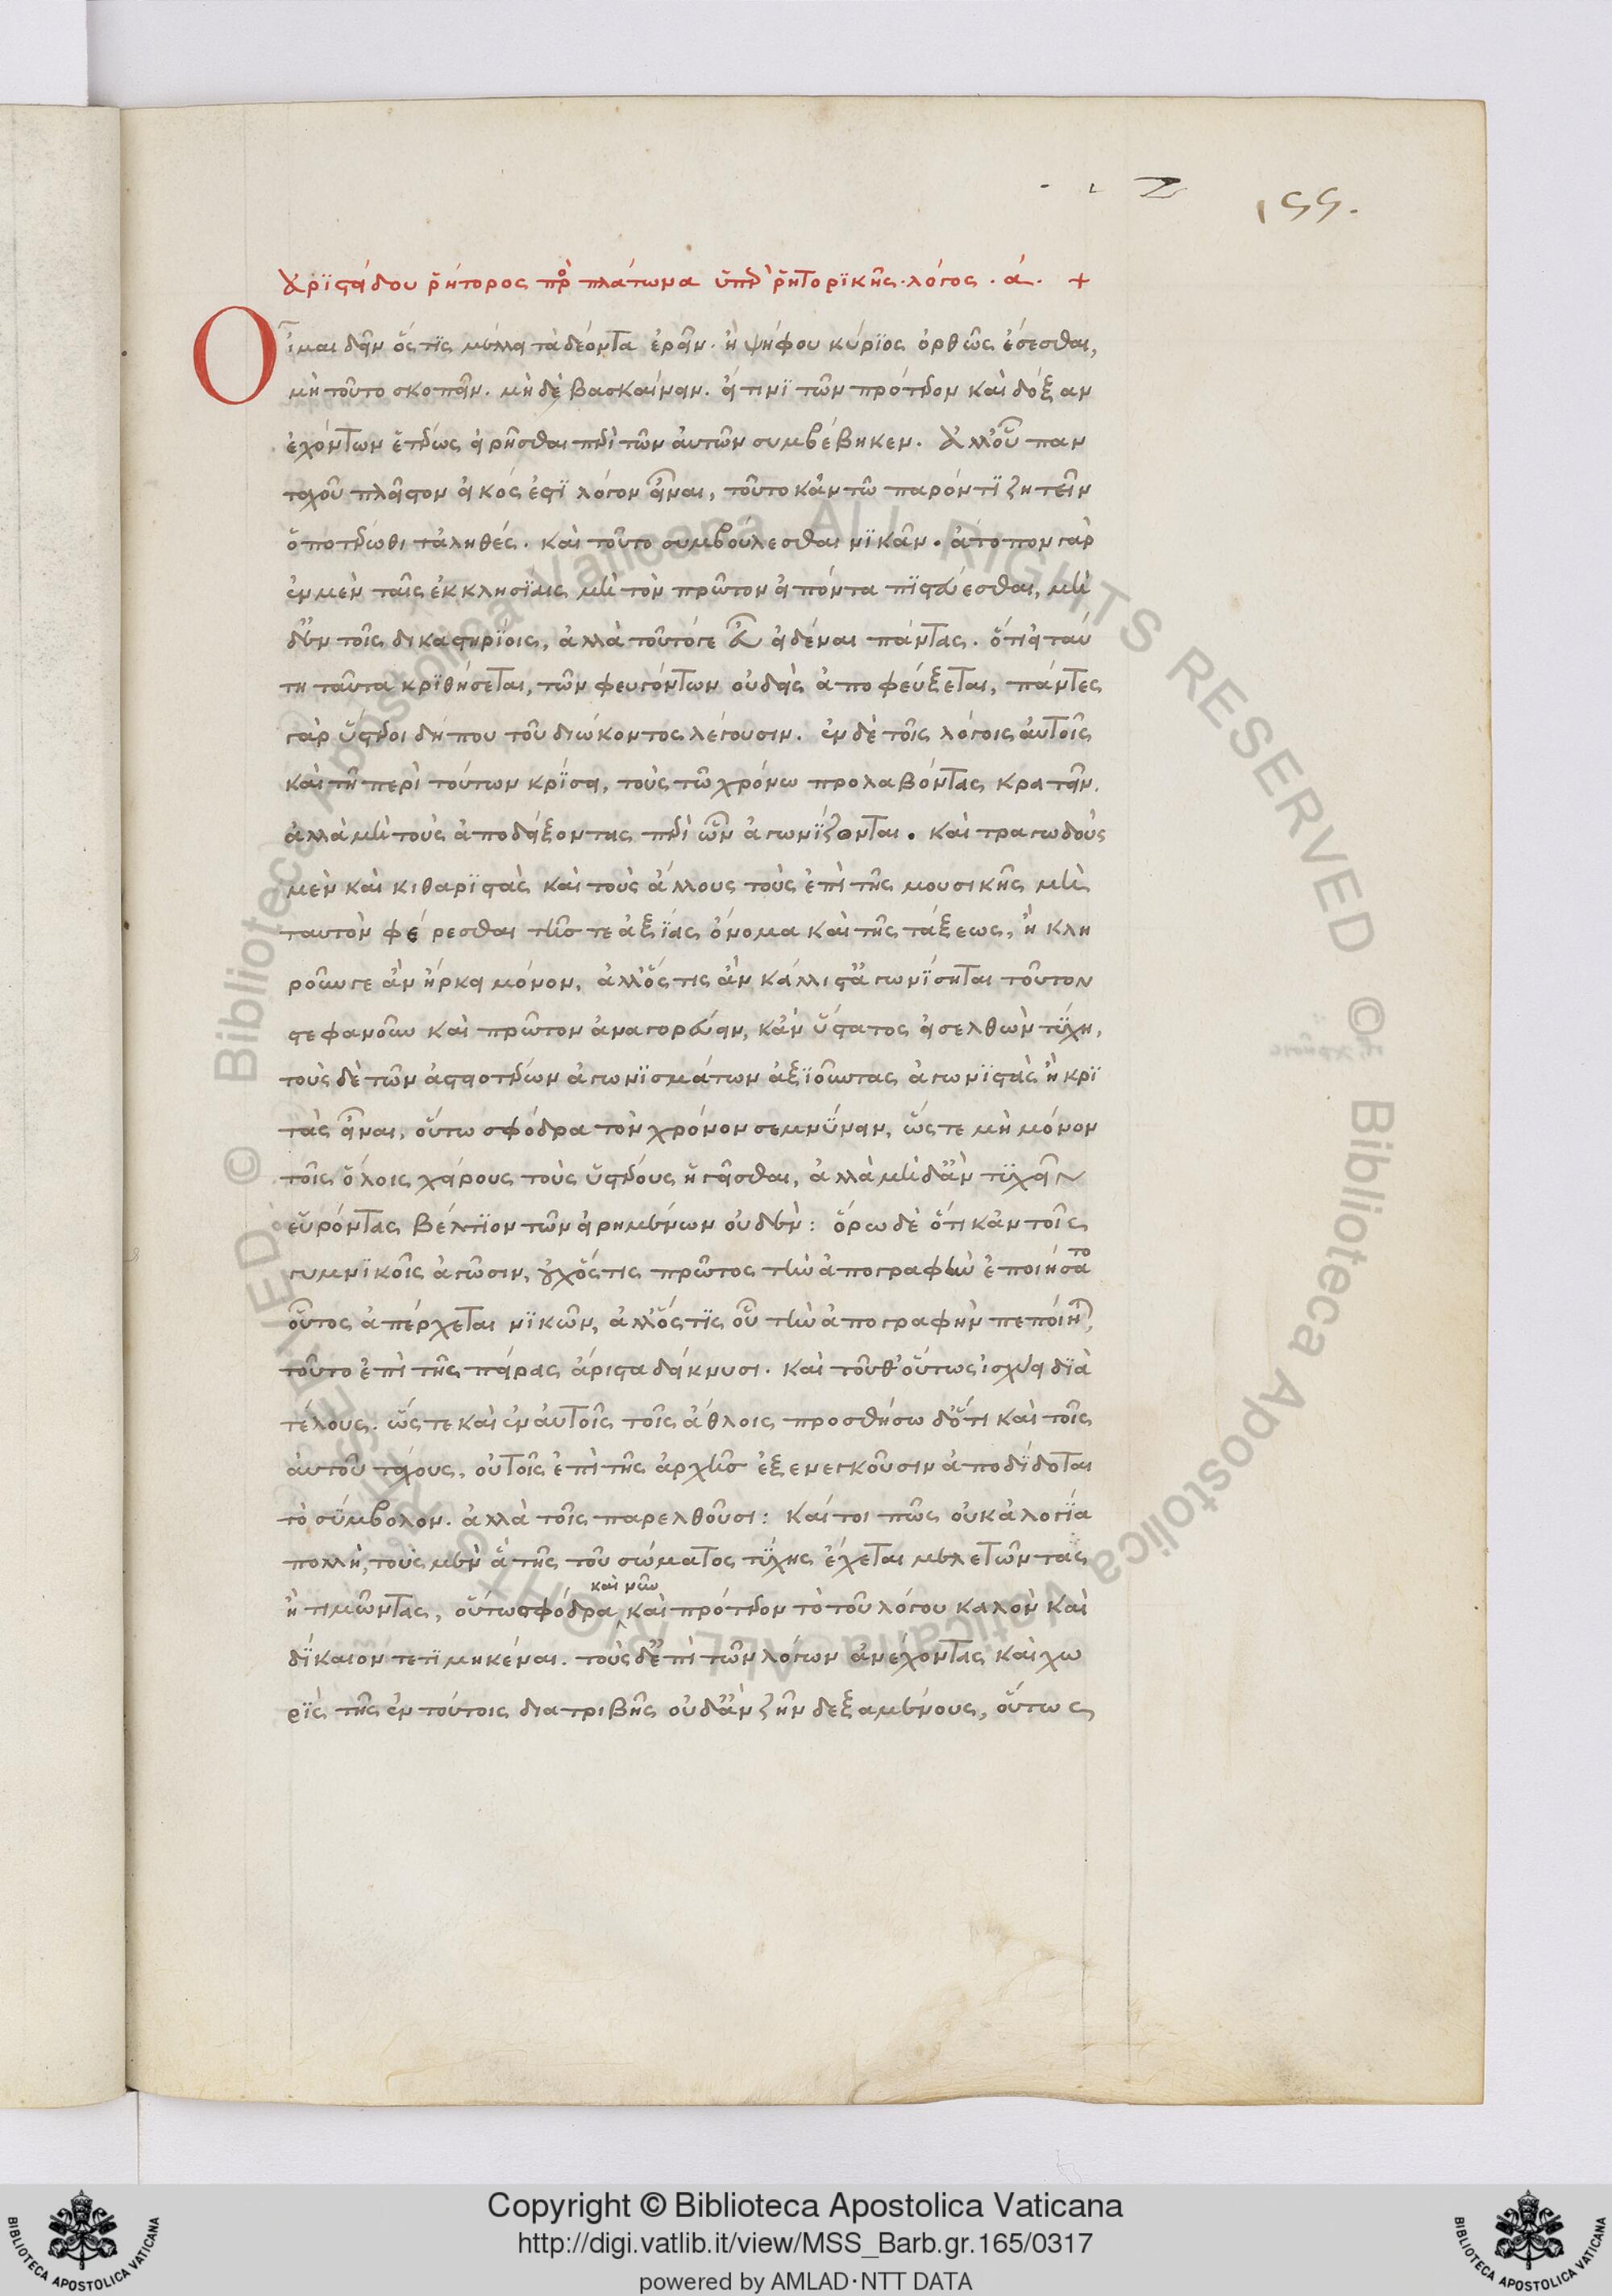 155.
Ἀριστείδου ῥήτορος πρὸς πλάτωνα ὑπὲρ ῥητορικῆς· λόγος · ά. +
Οἶμαι δεῖν ὅστις μέλλει τὰ δέοντα ἐρεῖν. ἢ ψήφου κύριος ὀρθῶς ἔσεσθαι,
μὴ τοῦτο σκοπεῖν. μὴ δὲ βασκαίνειν. εἴ τινι τῶν πρότερον καὶ δόξαν
ἐχόντων ἑτέρως εἰρῆσθαι περὶ τῶν αὐτῶν συμβέβηκεν. Ἀλλ' οὗ παν
ταχοῦ πλεῖστον εἰκός ἐστι λόγον εἶναι, τοῦτο κἀν τῷ παρόντι ζητεῖν
ὁποτέρωθι τἀληθές. καὶ τοῦτο συμβούλεσθαι νικᾶν. ἄτοπον γὰρ
ἐν μὲν ταῖς ἐκκλησίαις μὴ τὸν πρῶτον εἰπόντα πιστεύεσθαι, μὴ
δ' ἐν τοῖς δικαστηρίοις, ἀλλὰ τοῦτό γε καὶ εἰδέναι πάντας. ὅτι εἰ ταύ
τη ταῦτα κριθήσεται, τῶν φευγόντων οὐδεὶς ἀποφεύξεται, πάντες
γὰρ ὕστεροι δήπου τοῦ διώκοντος λέγουσιν. ἐν δὲ τοῖς λόγοις αὐτοῖς
καὶ τῇ περὶ τούτων κρίσει, τοὺς τῷ χρόνω προλαβόντας κρατεῖν.
ἀλλὰ μὴ τοὺς ἀποδείξοντας περὶ ὧν ἀγωνίζονται. καὶ τραγωδοὺς
μὲν καὶ κιθαριστὰς καὶ τοὺς ἄλλους τοὺς ἐπὶ τῆς μουσικῆς μὴ
ταυτὸν φέρεσθαι τῆς τε ἀξίας ὄνομα καὶ τῆς τάξεως, ἢ κλη
ροῦν γε ἂν ἤρκει μόνον, ἀλλ' ὅστις ἂν κάλλιστα ἀγωνίσηται τοῦτον
στεφανοῦν καὶ πρῶτον ἀναγορεύειν, κἂν ὕστατος εἰσελθὼν τύχη,
τοὺς δὲ τῶν ἀστοτέρων ἀγωνισμάτων ἀξιοῦντας ἀγωνιστὰς ἢ κρι
τὰς εἶναι, οὕτω σφόδρα τὸν χρόνον σεμνύνειν, ὥστε μὴ μόνον
τοῖς ὅλοις χείρους τοὺς ὑστέρους ἡγεῖσθαι, ἀλλὰ μὴ δ' ἂν τυχεῖν
εὑρόντας βέλτιον τῶν εἰρημένων οὐδὲν: ὁρῶ δὲ ὅτι κἀν τοῖς
γυμνικοῖς ἀγῶσιν, οὐχ ὅστις πρῶτος τὴν ἀπογραφὴν ἐποιήσατο
οὗτος ἀπέρχεται νικῶν, ἀλλ' ὅστις οὗ τὴν ἀπογραφὴν πεποίηται,
τοῦτο ἐπὶ τῆς πείρας ἄριστα δείκνυσι. καὶ τοῦθ' οὕτως ἰσχύει διὰ
τέλους. ὥστε καὶ ἐν αὐτοῖς τοῖς ἄθλοις προσθήσω δ' ὅτι καὶ τοῖς
αὐτοῦ τάχους, οὐ τοῖς ἐπὶ τῆς ἀρχῆς ἐξενεγκοῦσιν ἀποδίδοται
τὸ σύμβολον. ἀλλὰ τοῖς παρελθοῦσι: καίτοι πῶς οὐκ ἀλογία
πολλὴ, τοὺς μὲν ἃ τῆς τοῦ σώματος τύχης ἔχεται μελετῶντας
ἢ τιμῶντας, οὕτω σφόδρα καὶ νῦν καὶ πρότερον τὸ τοῦ λόγου καλὸν καὶ
δίκαιον τετιμηκέναι. τοὺς δ' ἐπὶ τῶν λόγων ἀνέχοντας καὶ χω
ρὶς τῆς ἐν τούτοις διατριβῆς οὐδ' ἂν ζῆν δεξαμένους, οὕτως
Copyright © Biblioteca Apostolica Vaticana
http://digi.vatlib.it/view/MSS_Barb.gr.165/0317
powered by AMLAD·NTT DATA